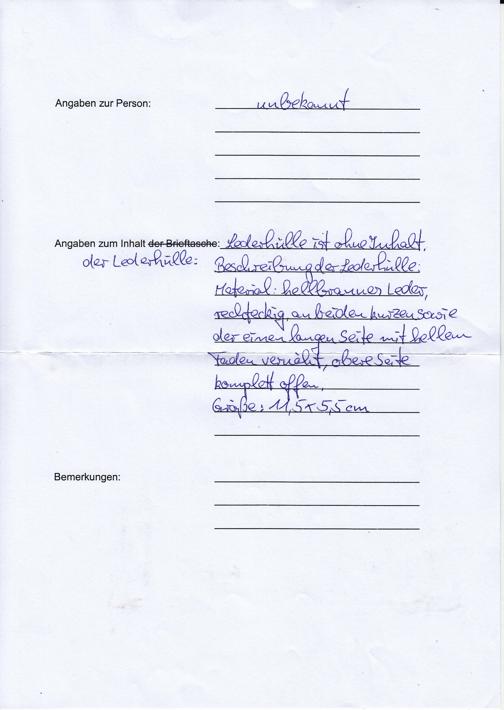 Angaben zur Person: unbekannt
Angaben zum Inhalt der Brieftasche: Lederhülle ist ohne Inhalt.
der Lederhülle: Beschreibung der Lederhülle:
Material: hellbrauner Leder,
rechteckig, an beiden kurzen sowie
der einen langen Seite mit hellem
Faden vernäht, obere Seite
komplett offen.
Größe: 11,5 x 5,5 cm
Bemerkungen: